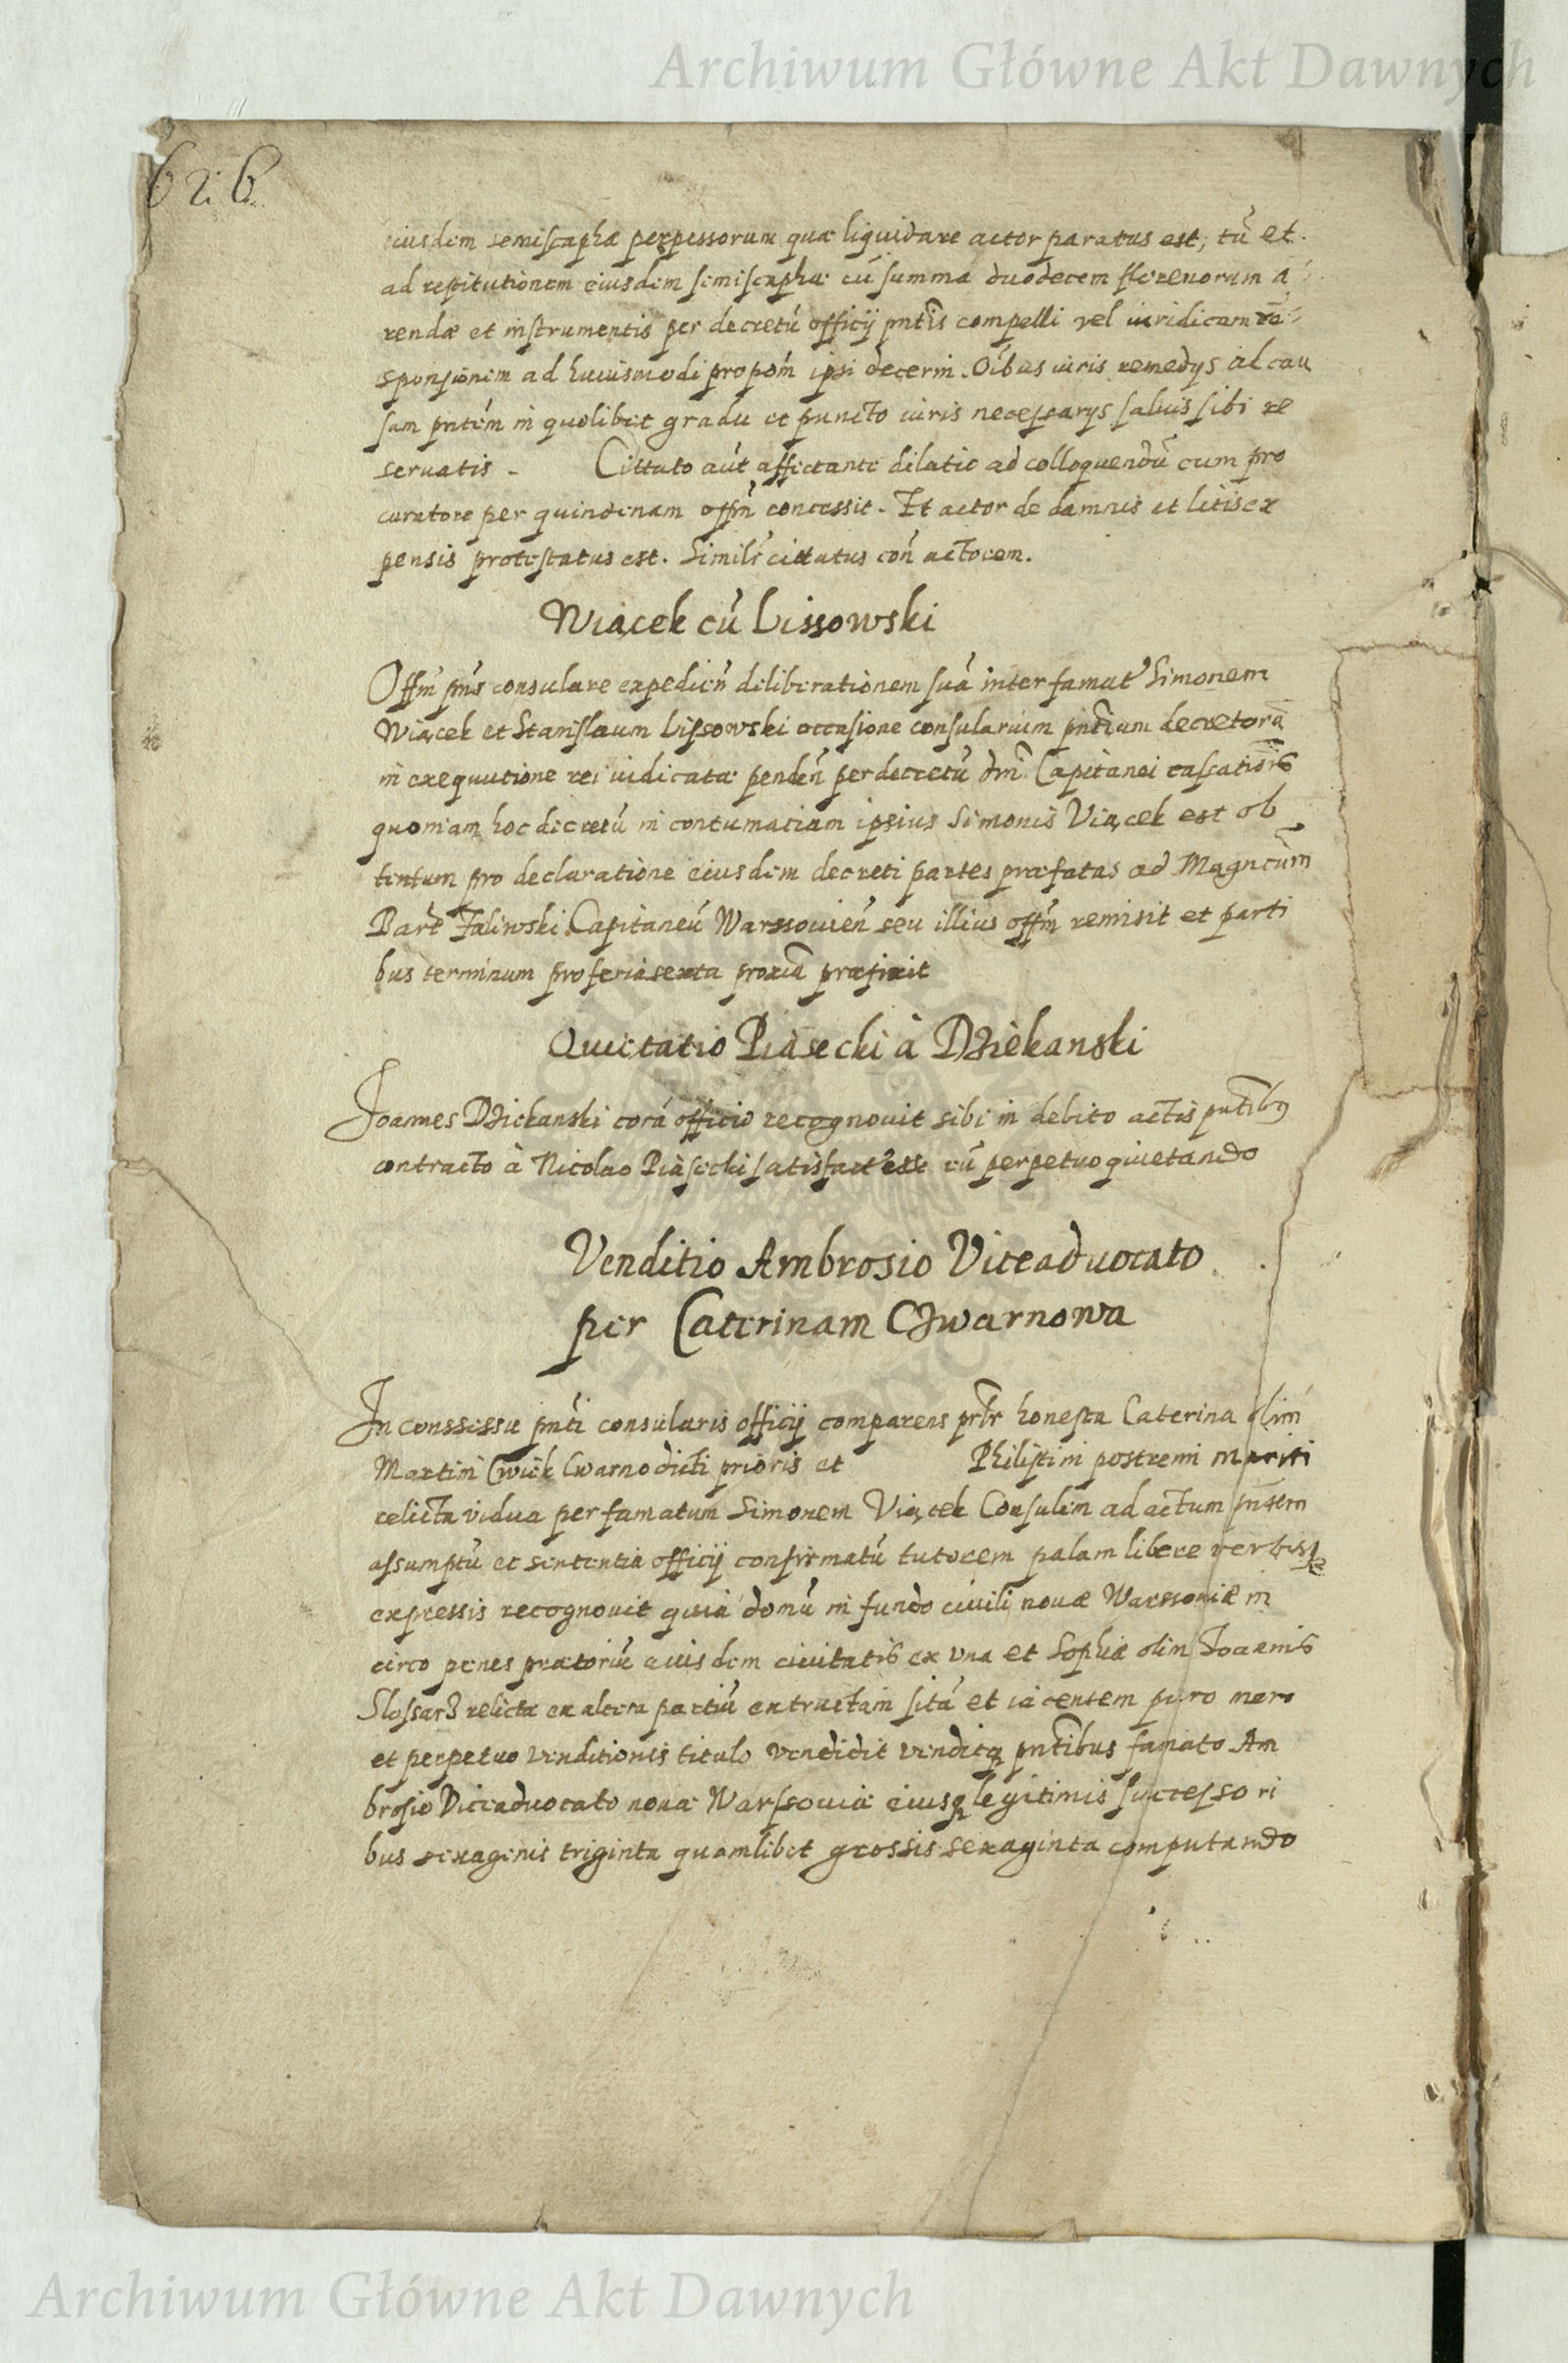 Archiwum Główne Akt Dawnych
62. b.
eiusdem semiscaphæ perpessorum quæ liquidare actor paratus est, tũ et
ad restitutionem eiusdem semiscaphæ cũ summa duodecem florenorum a
rendæ et instrumentis per decretũ officij pntis compelli vel iuridicam re
sponsionem ad huiusmodi propõm ipsi decerni. Oibus iuris remedijs al cau
sam pntem in quolibet gradu et puncto iuris necessarijs salvis sibi re
servatis - Cittato aut affectante dilatio ad colloquendũ cum pro
curatore per quindenam offm concessit. Et actor de damnis et litis ex
pensis protestatus est. Similr cittatus con actorem.
Wiącek cũ Lissowski
Offm pns consulare expedien deliberationem suã inter famat Simonem
Wiącek et Stanislaum Lissowski occasione consularium pntium decretorũ
in exequutione rei iudicatæ penden per decretũ dni Capitanei cascationis
quoniam hoc decretũ in contumatiam ipsius Simonis Viącek est ob
tentum pro declaratione eiusdem decreti partes præfatas ad Magncum
Bart Zaliwski Capitaneũ Warssovien seu illius offm remisit et parti
bus terminum pro feria sexta proxia præfixit
Quietatio Piasecki à Dziekanski
Joannes Dziekanski corã officio recognovit sibi in debito actis pntibus
contracto à Nicolao Piasecki satisfact esse eũ perpetuo quietando
Venditio Ambrosio Viceadvocato
per Caterinam Czwarnowa
In conssessu pnti consularis officij comparens prtr honesta Caterina olim
Martini Cwiek Cwarno dicti prioris et Philistini postremi mariti
relicta vidua per famatum Simonem Viącek Consulem ad actum pntem
assumptũ et sententia officij confirmatũ tutorem palam libere verbisq
expressis recognovit quia domũ in fundo civili novæ Warssoviæ in
circo penes prætoriũ eiusdem civitatis ex una et Sophiæ olim Joannis
Slossarz relictæ ex altera partiũ extructam sitã et iacentem puro mero
et perpetuo venditionis titulo vendidit venditq pntibus famato Am
brosio Viceadvocato novæ Warssoviæ eiusq legitimis successori
bus sexagenis triginta quamlibet grossis sexaginta computando
Archiwum Główne Akt Dawnych